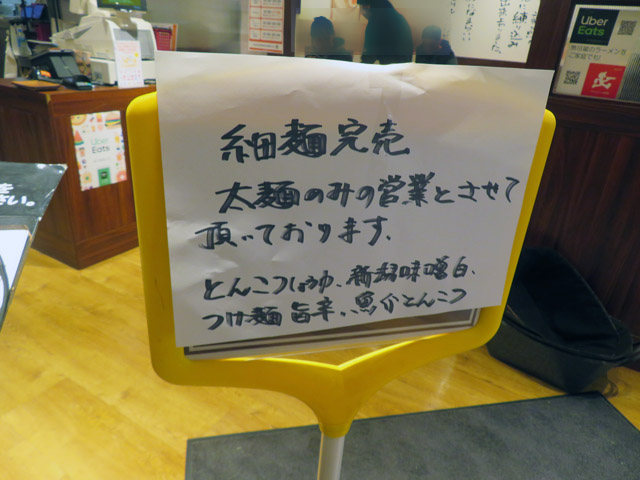 細麺完売
太麺のみの営業とさせて
頂いております、
とんこつしょうゆ、新潟味噌白、
つけ麺 旨辛、魚介とんこつ
Uber
Eats
Uber
Eats
さい。